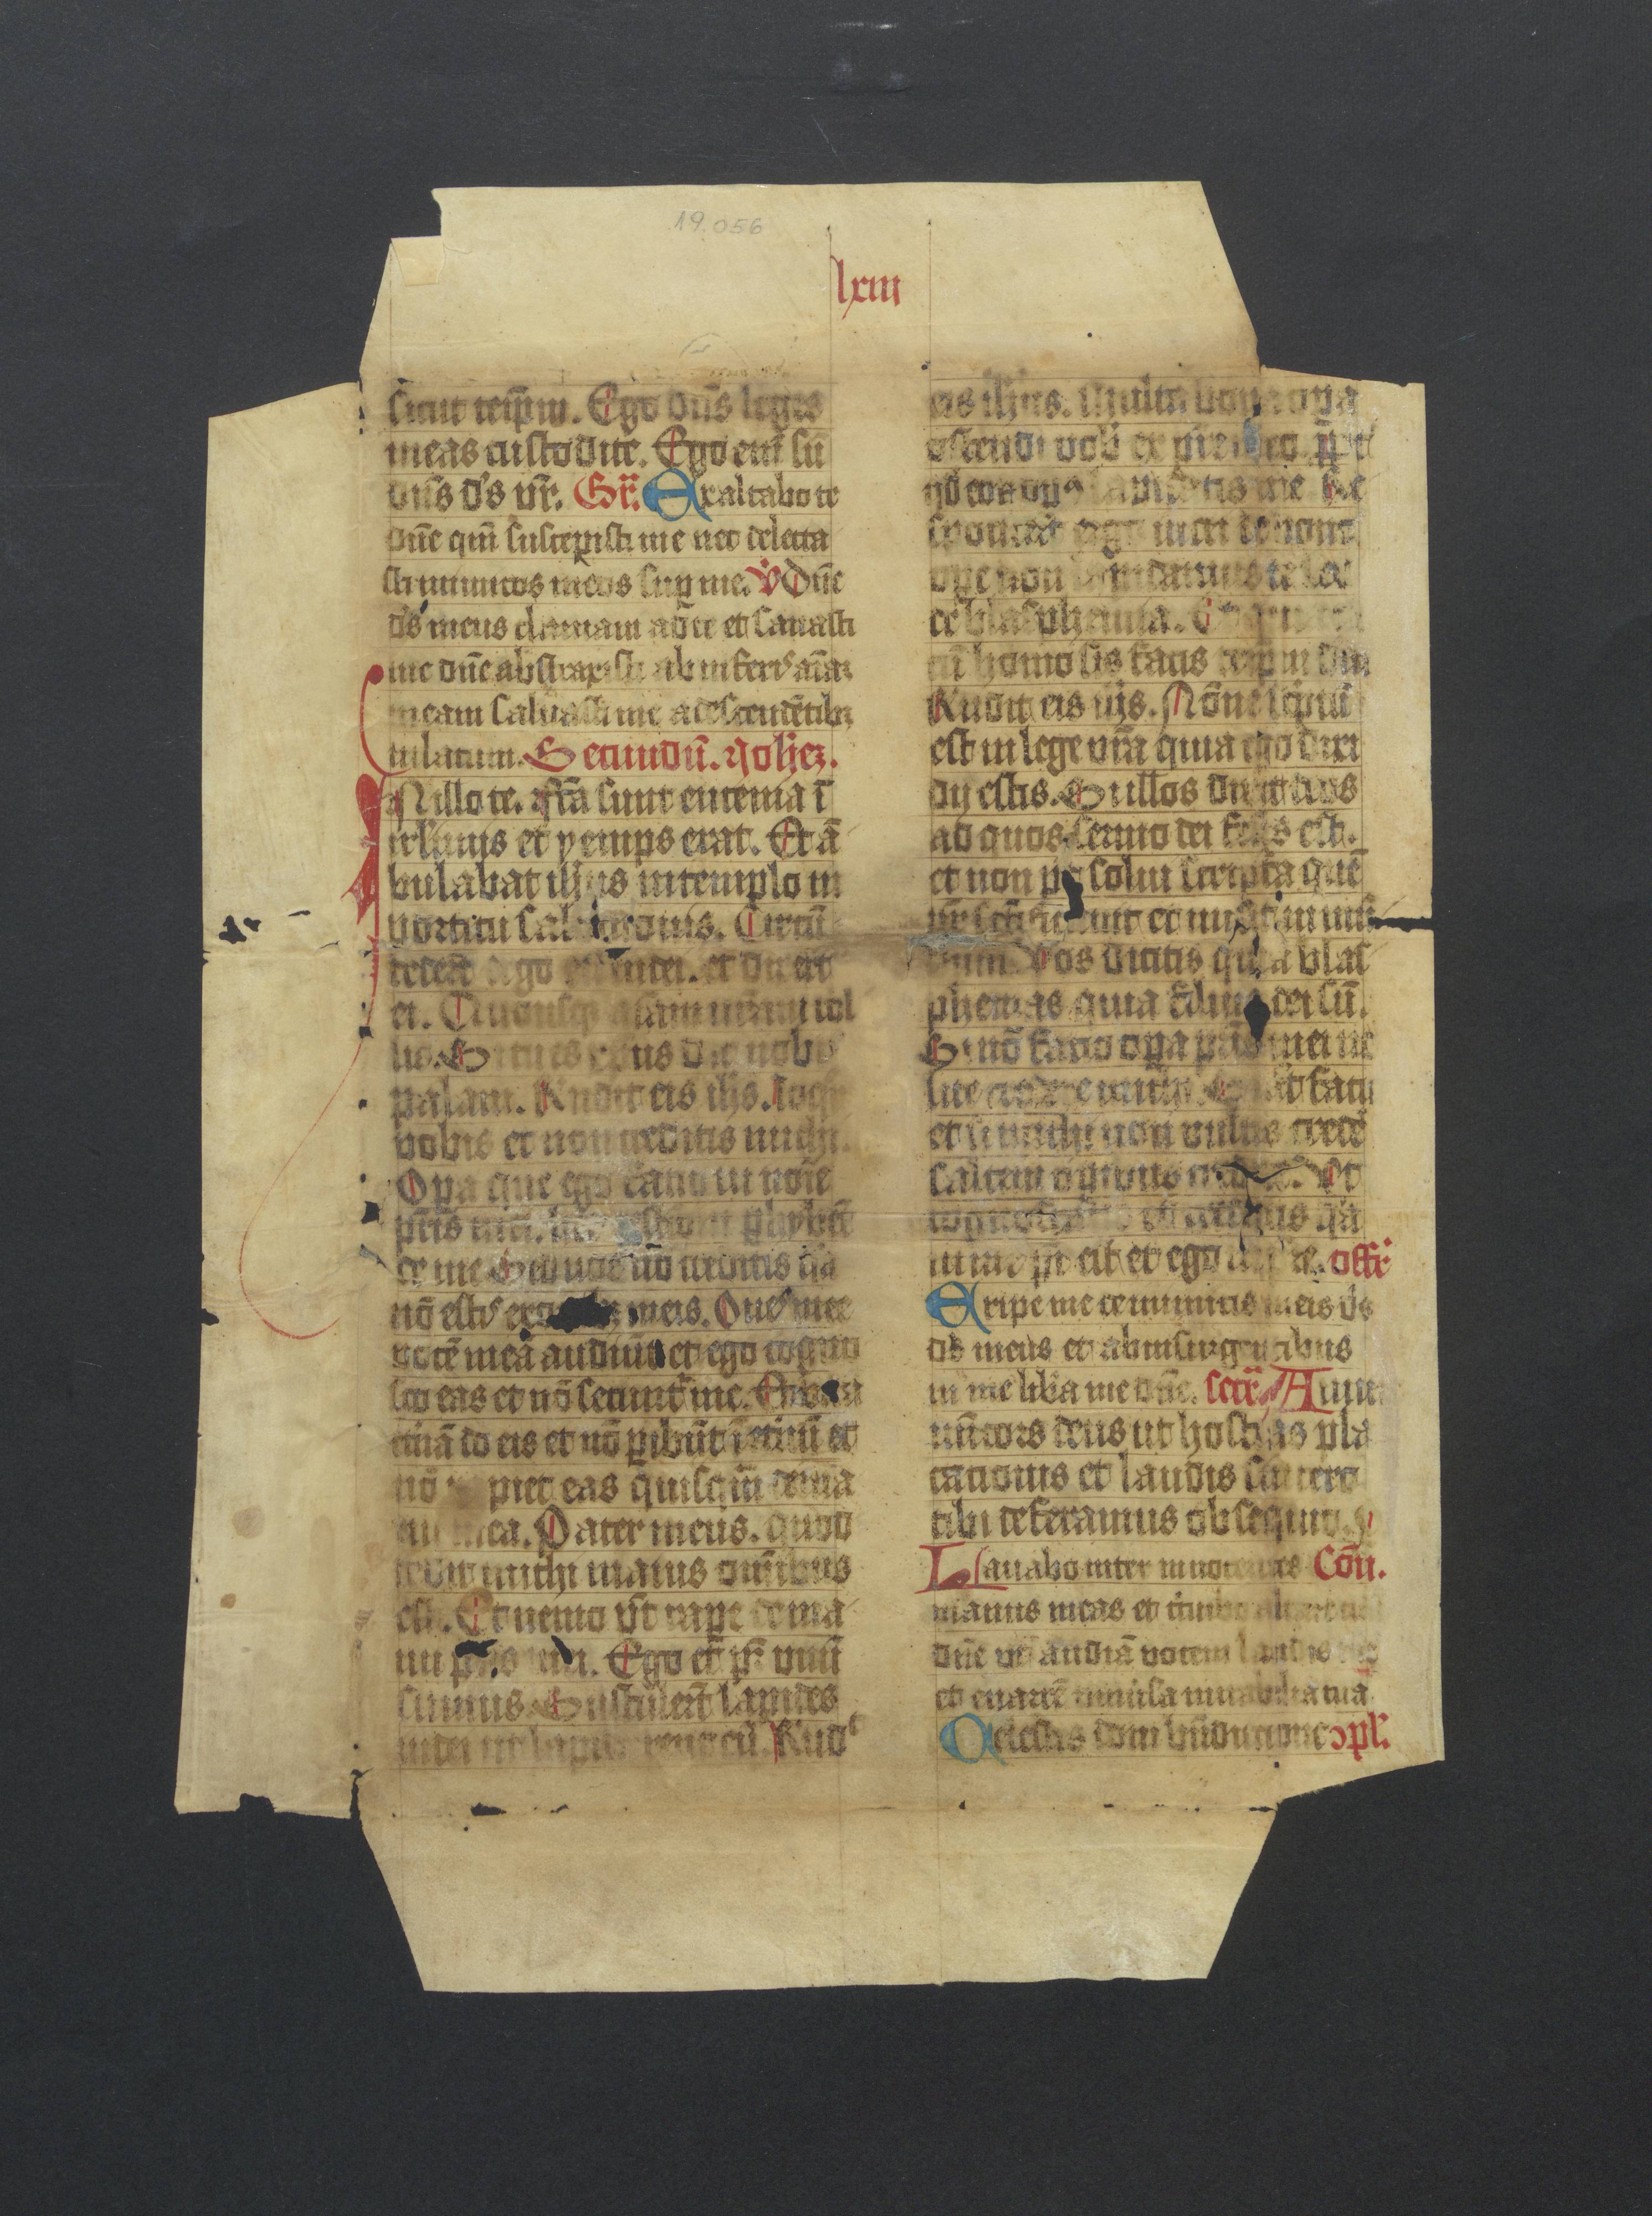 19.056
lxiii
sicut teip̄m. Ego dn̄s leges
meas custodite. Ego eni su
dn̄s ds vr̄. Gr̄. Exaltabo te
dn̄e qm̄ suscepisti me nec delecta
sti inimicos meos sup me. V Dn̄e
ds meus clamaui ad te et sanasti
me dn̄e abstraxisti ab inferis aīaʒ
meam saluasti me a descendētibʒ
in lacum. Secundū. Joheʒ.
N illo te. Fc̄a sunt encenia ī
irl̄imis et yemps erat. Et ā
bulabat ihus in templo in
porticu salomonis. Circū
dedert ergo eū iudei. et dicebāt
ei. Quousqʒ aīam nr̄am tol
lis. Si tu es xpus dic nobis
palam. Rn̄dit eis ihs. loqr
vobis et non creditis michi.
Opa que ego facio in noīe
pr̄is mei. hibēt
de me Sed uos nō creditis qa
nō estis ex meis. Oues mee
vocē meā audiūt et ego cogno
sco eas et nō secuntr me. Et vitā
etnā do eis et nō pibūt ī etnū et
nō piet eas quisqm̄ de ma
nu mea. Pater meus. quod
dedit michi maius omībus
est. Et nemo pt rape de ma
nu pris mei. Ego et pr̄ vnū
sumus. Sustulert lapides
iudei ut lapidarent eū. Rn̄dt
eis ihus. Multa bona opa
ostendi vob ex pre meo. ppt
qd eoʒ opus lapidatis me. Re
sponderūt ergo iudei de bono
ope non lapidamus te sed
de blasphemia. Et quia tu
cū homo sis facis teipm dm
Rn̄dit eis ihs. Nōne scptū
est in lege vr̄a quia ego dixi
dij estis. Si illos dixit deos
ad quos sermo dei fctus est.
et non pt solui scriptura quē
pr̄ sctificauit et misit in mū
dum. Vos dicitis quia blas
phemas quia dixi filius dei sū.
Si nō facio opa pris mei no
lite credere michi. Si aūt facio
et si michi non vultis credē
saltem opibus credite. Vt
cognoscatis et credatis qa
in me pr̄ est et ego in pre. offr̄.
Eripe me de inimicis meis ds
ds meus et ab insurgentibus
in me libera me dn̄e. secr̄. Annue
misericors deus ut hostias pla
cationis et laudis sincero
tibi deferamus obsequio. p
Lauabo inter innocentes Cōn.
manus meas et circuibo altare tuū
dn̄e vt audiā vocem laudis tue
et enarrē uniusa mirabilia tua
Celestis doni bn̄dictione ↄpl.